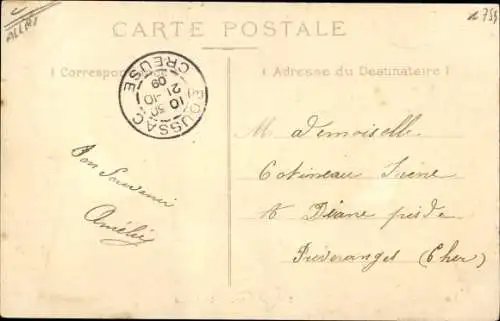 ALLIER
CARTE POSTALE
Correspon
Adresse du Destinataire
BOUSSAC
CREUSE
10 30
21 -10
09
Bon Souvenir
Amélie
Mademoiselle
Cotineau Irène
à Diane près de
Préveranges (Cher)